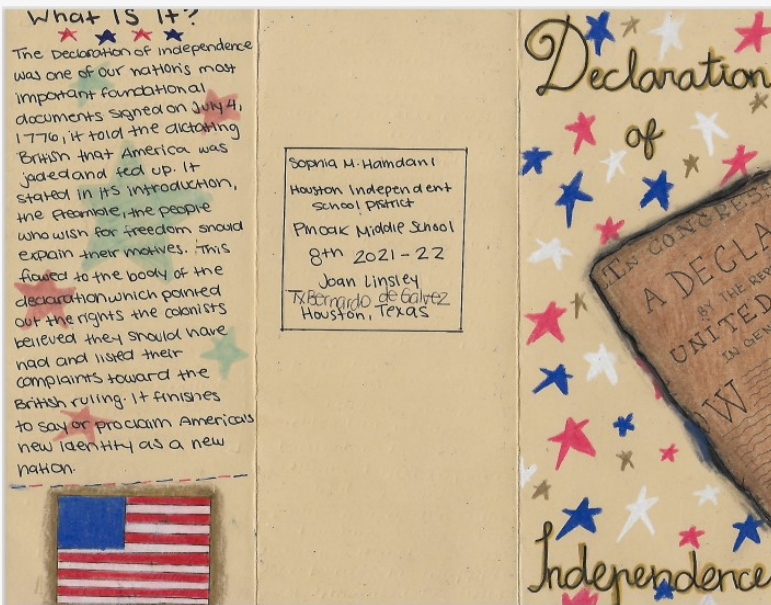 What Is It?
The Declaration of independence
was one of our nation's most
important foundational
documents signed on July 4,
1776, it told the dictating
British that America was
jaded and fed up. It
stated in its introduction,
the Preamble, the people
who wish for freedom should
explain their motives. This
flowed to the body of the
declaration which pointed
out the rights the colonists
believed they should have
had and listed their
complaints toward the
British ruling. It finishes
to say or proclaim America's
new identity as a new
nation.
Sophia M. Hamdani
Houston Independent
School District
Pinoak Middle School
8th 2021-22
Joan Linsley
TX Bernardo de Galvez
Houston, Texas
Declaration
of
Independence
IN CONGRESS
A DECLA
BY THE REP
UNITED
IN GEN
W